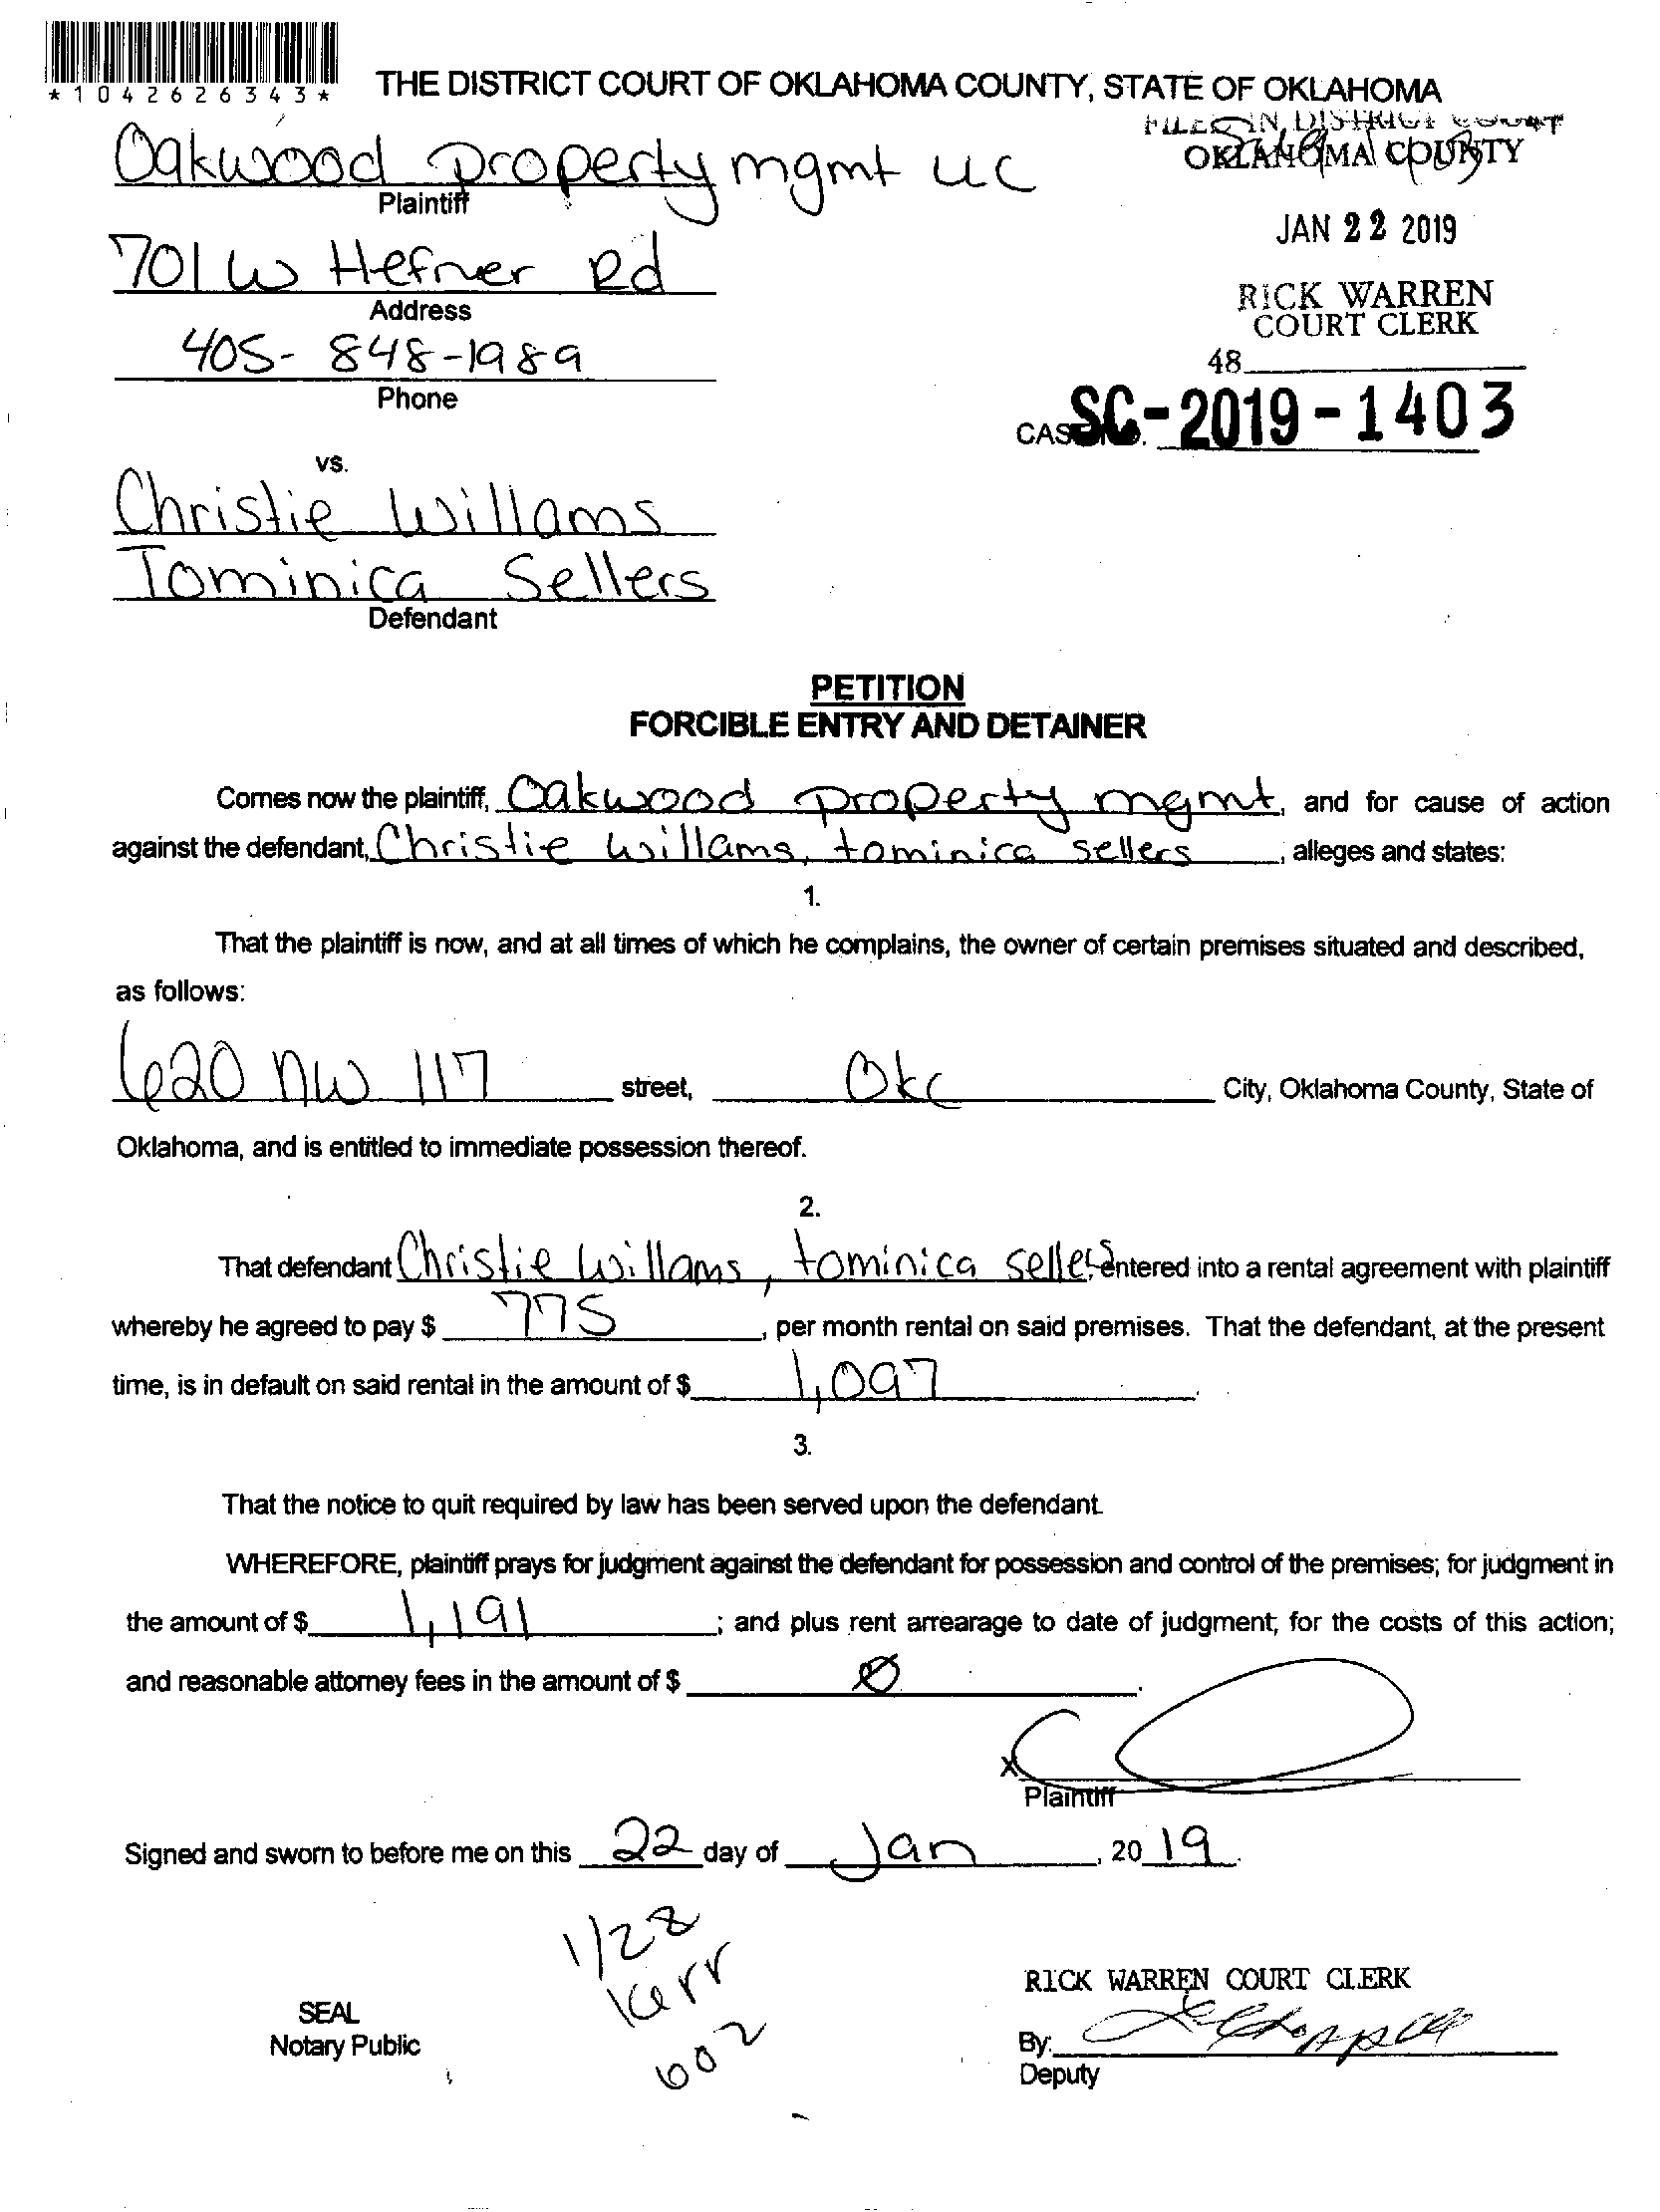 *1042626343*
THE DISTRICT COURT OF OKLAHOMA COUNTY, STATE OF OKLAHOMA
FILED IN DISTRICT COURT
OKLAHOMA COUNTY
Oakwood property mgmt LLC
Plaintiff
JAN 22 2019
701 W Hefner Rd
Address
RICK WARREN
COURT CLERK
405-848-1989
Phone
48
CASE NO. SC-2019-1403
vs.
Christie Willams
Tominica Sellers
Defendant
PETITION
FORCIBLE ENTRY AND DETAINER
Comes now the plaintiff, Oakwood property mgmt, and for cause of action
against the defendant, Christie Willams, tominica sellers, alleges and states:
1.
That the plaintiff is now, and at all times of which he complains, the owner of certain premises situated and described,
as follows:
620 NW 117 street, Okc City, Oklahoma County, State of
Oklahoma, and is entitled to immediate possession thereof.
2.
That defendant Christie Willams, tominica sellers entered into a rental agreement with plaintiff
whereby he agreed to pay $ 775, per month rental on said premises. That the defendant, at the present
time, is in default on said rental in the amount of $ 1,097.
3.
That the notice to quit required by law has been served upon the defendant.
WHEREFORE, plaintiff prays for judgment against the defendant for possession and control of the premises; for judgment in
the amount of $ 1,191; and plus rent arrearage to date of judgment; for the costs of this action;
and reasonable attorney fees in the amount of $ 0.
X
Plaintiff
Signed and sworn to before me on this 22 day of Jan, 2019.
1/28
Kerr
602
SEAL
Notary Public
RICK WARREN COURT CLERK
By:
Deputy